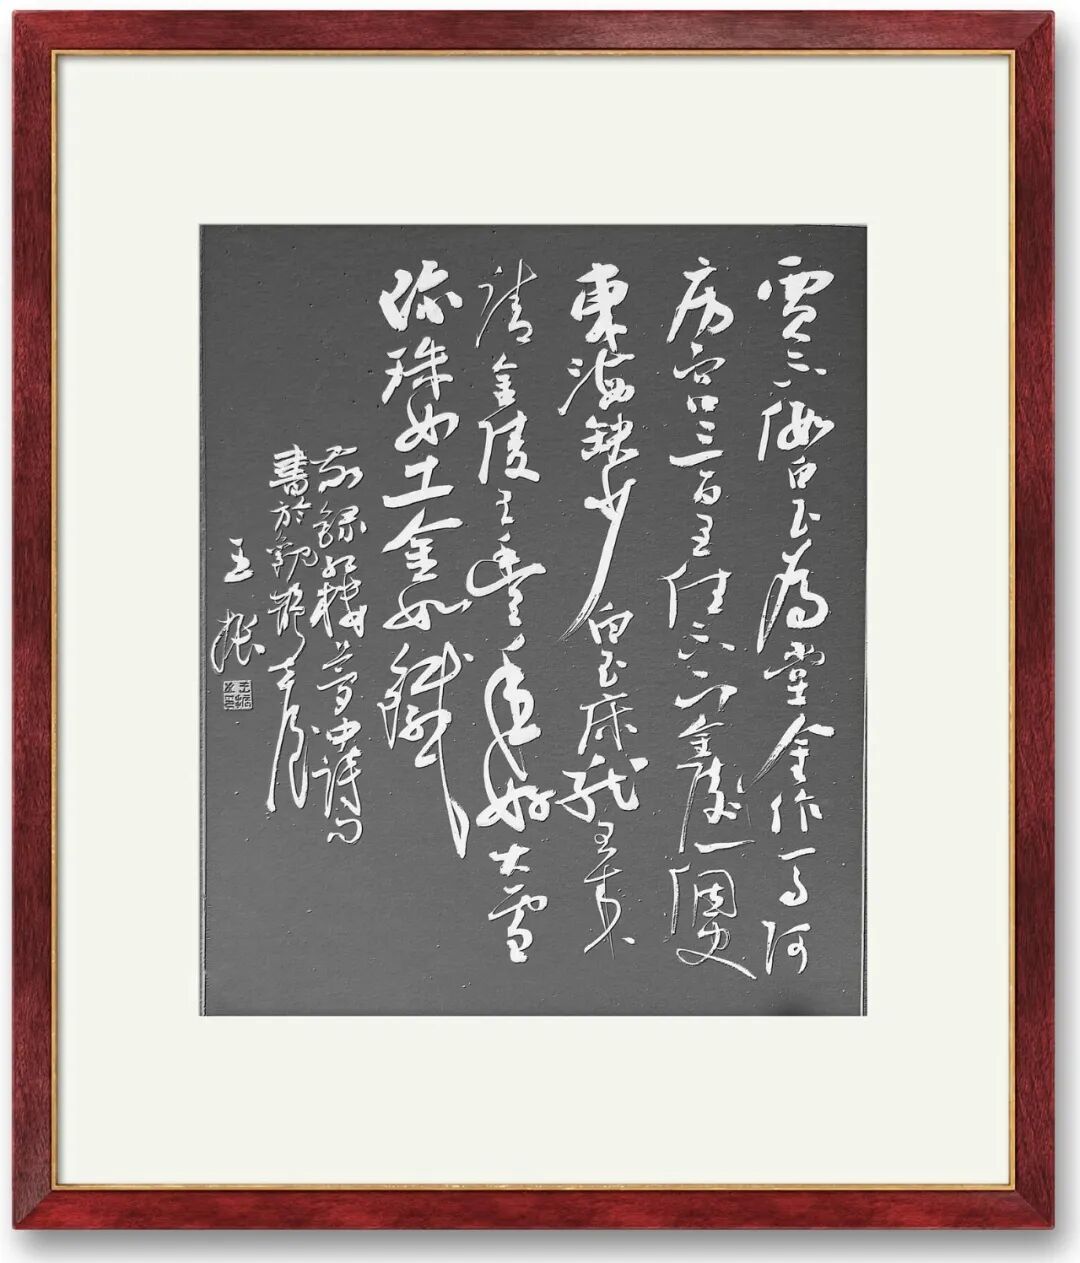 賈不假白玉為堂金作馬阿
房宮三百里住不下金陵一個史
東海缺少白玉床龍王來
請金陵王豐年好大雪
珍珠如土金如鐵
錄紅樓夢中詩句
書於觀
王振